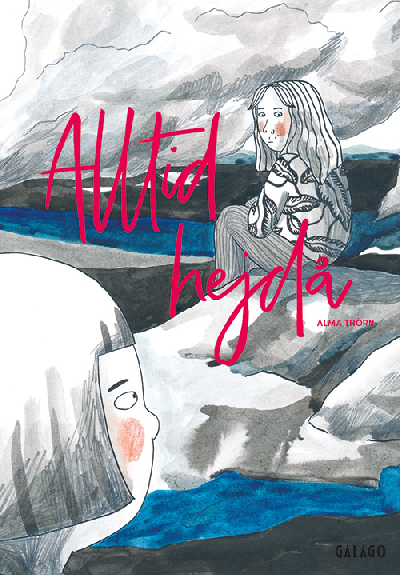 Alltid
hejdå
ALMA THÖRN
GALAGO